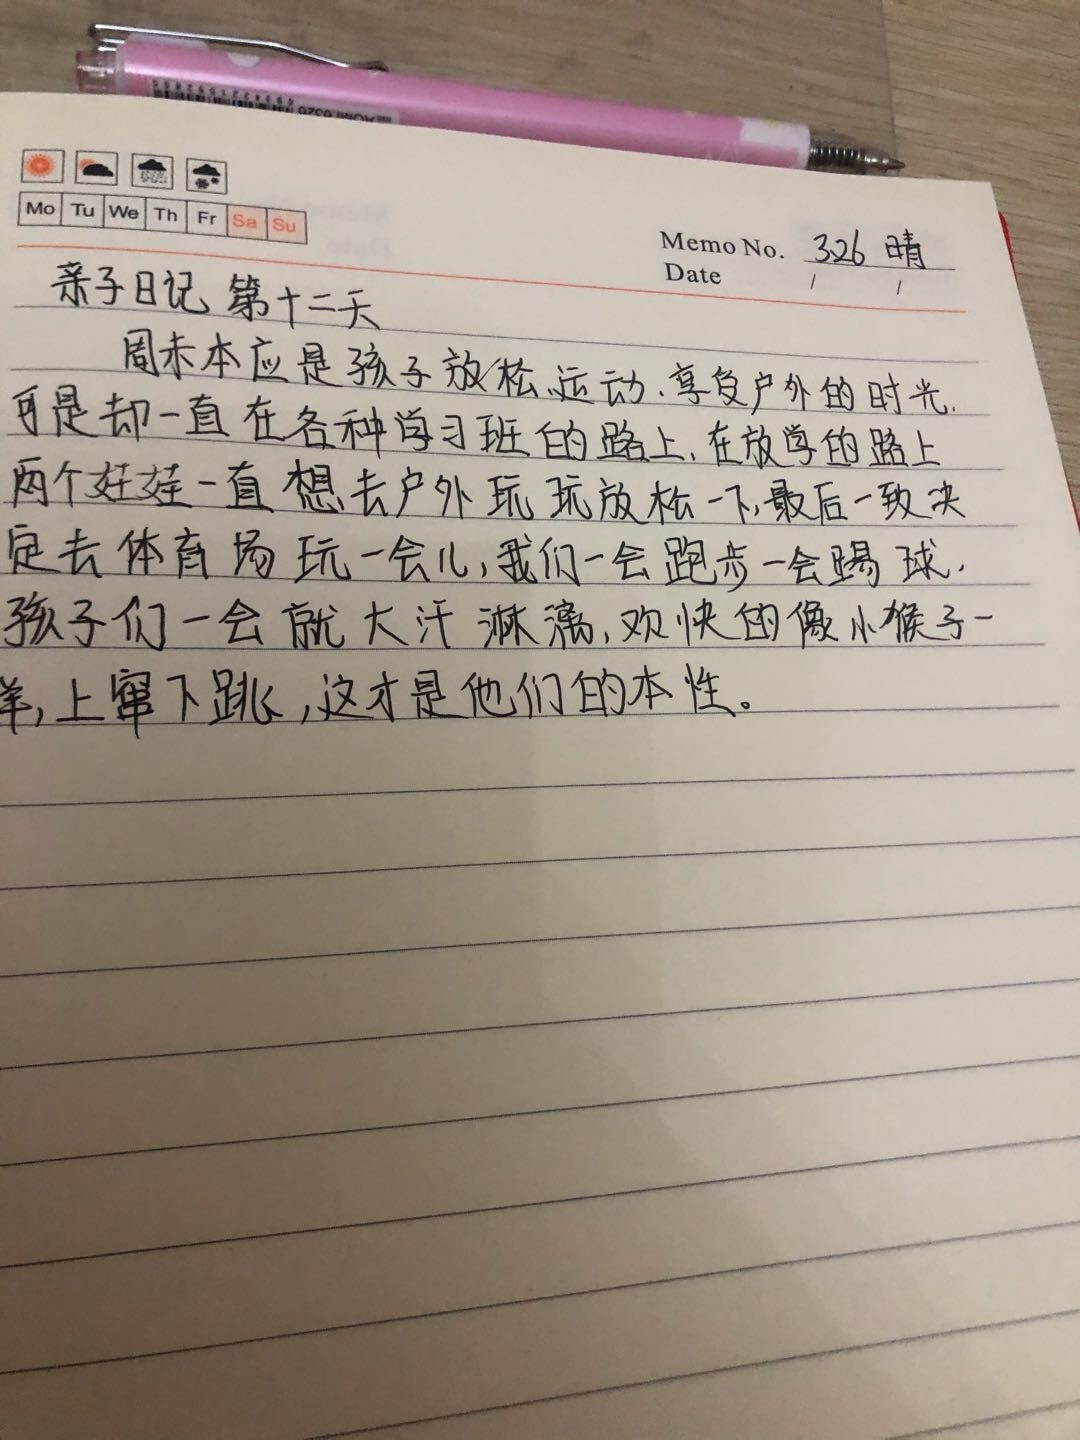 Mo Tu We Th Fr Sa Su
Memo No. 3.26 晴
Date / /
亲子日记 第十二天
周末本应是孩子放松、运动、享受户外的时光,
可是却一直在各种学习班的路上,在放学的路上
两个娃娃一直想去户外玩玩放松一下,最后一致决
定去体育场玩一会儿,我们一会跑步一会踢球,
孩子们一会就大汗淋漓,欢快的像小猴子一
样,上窜下跳,这才是他们的本性。